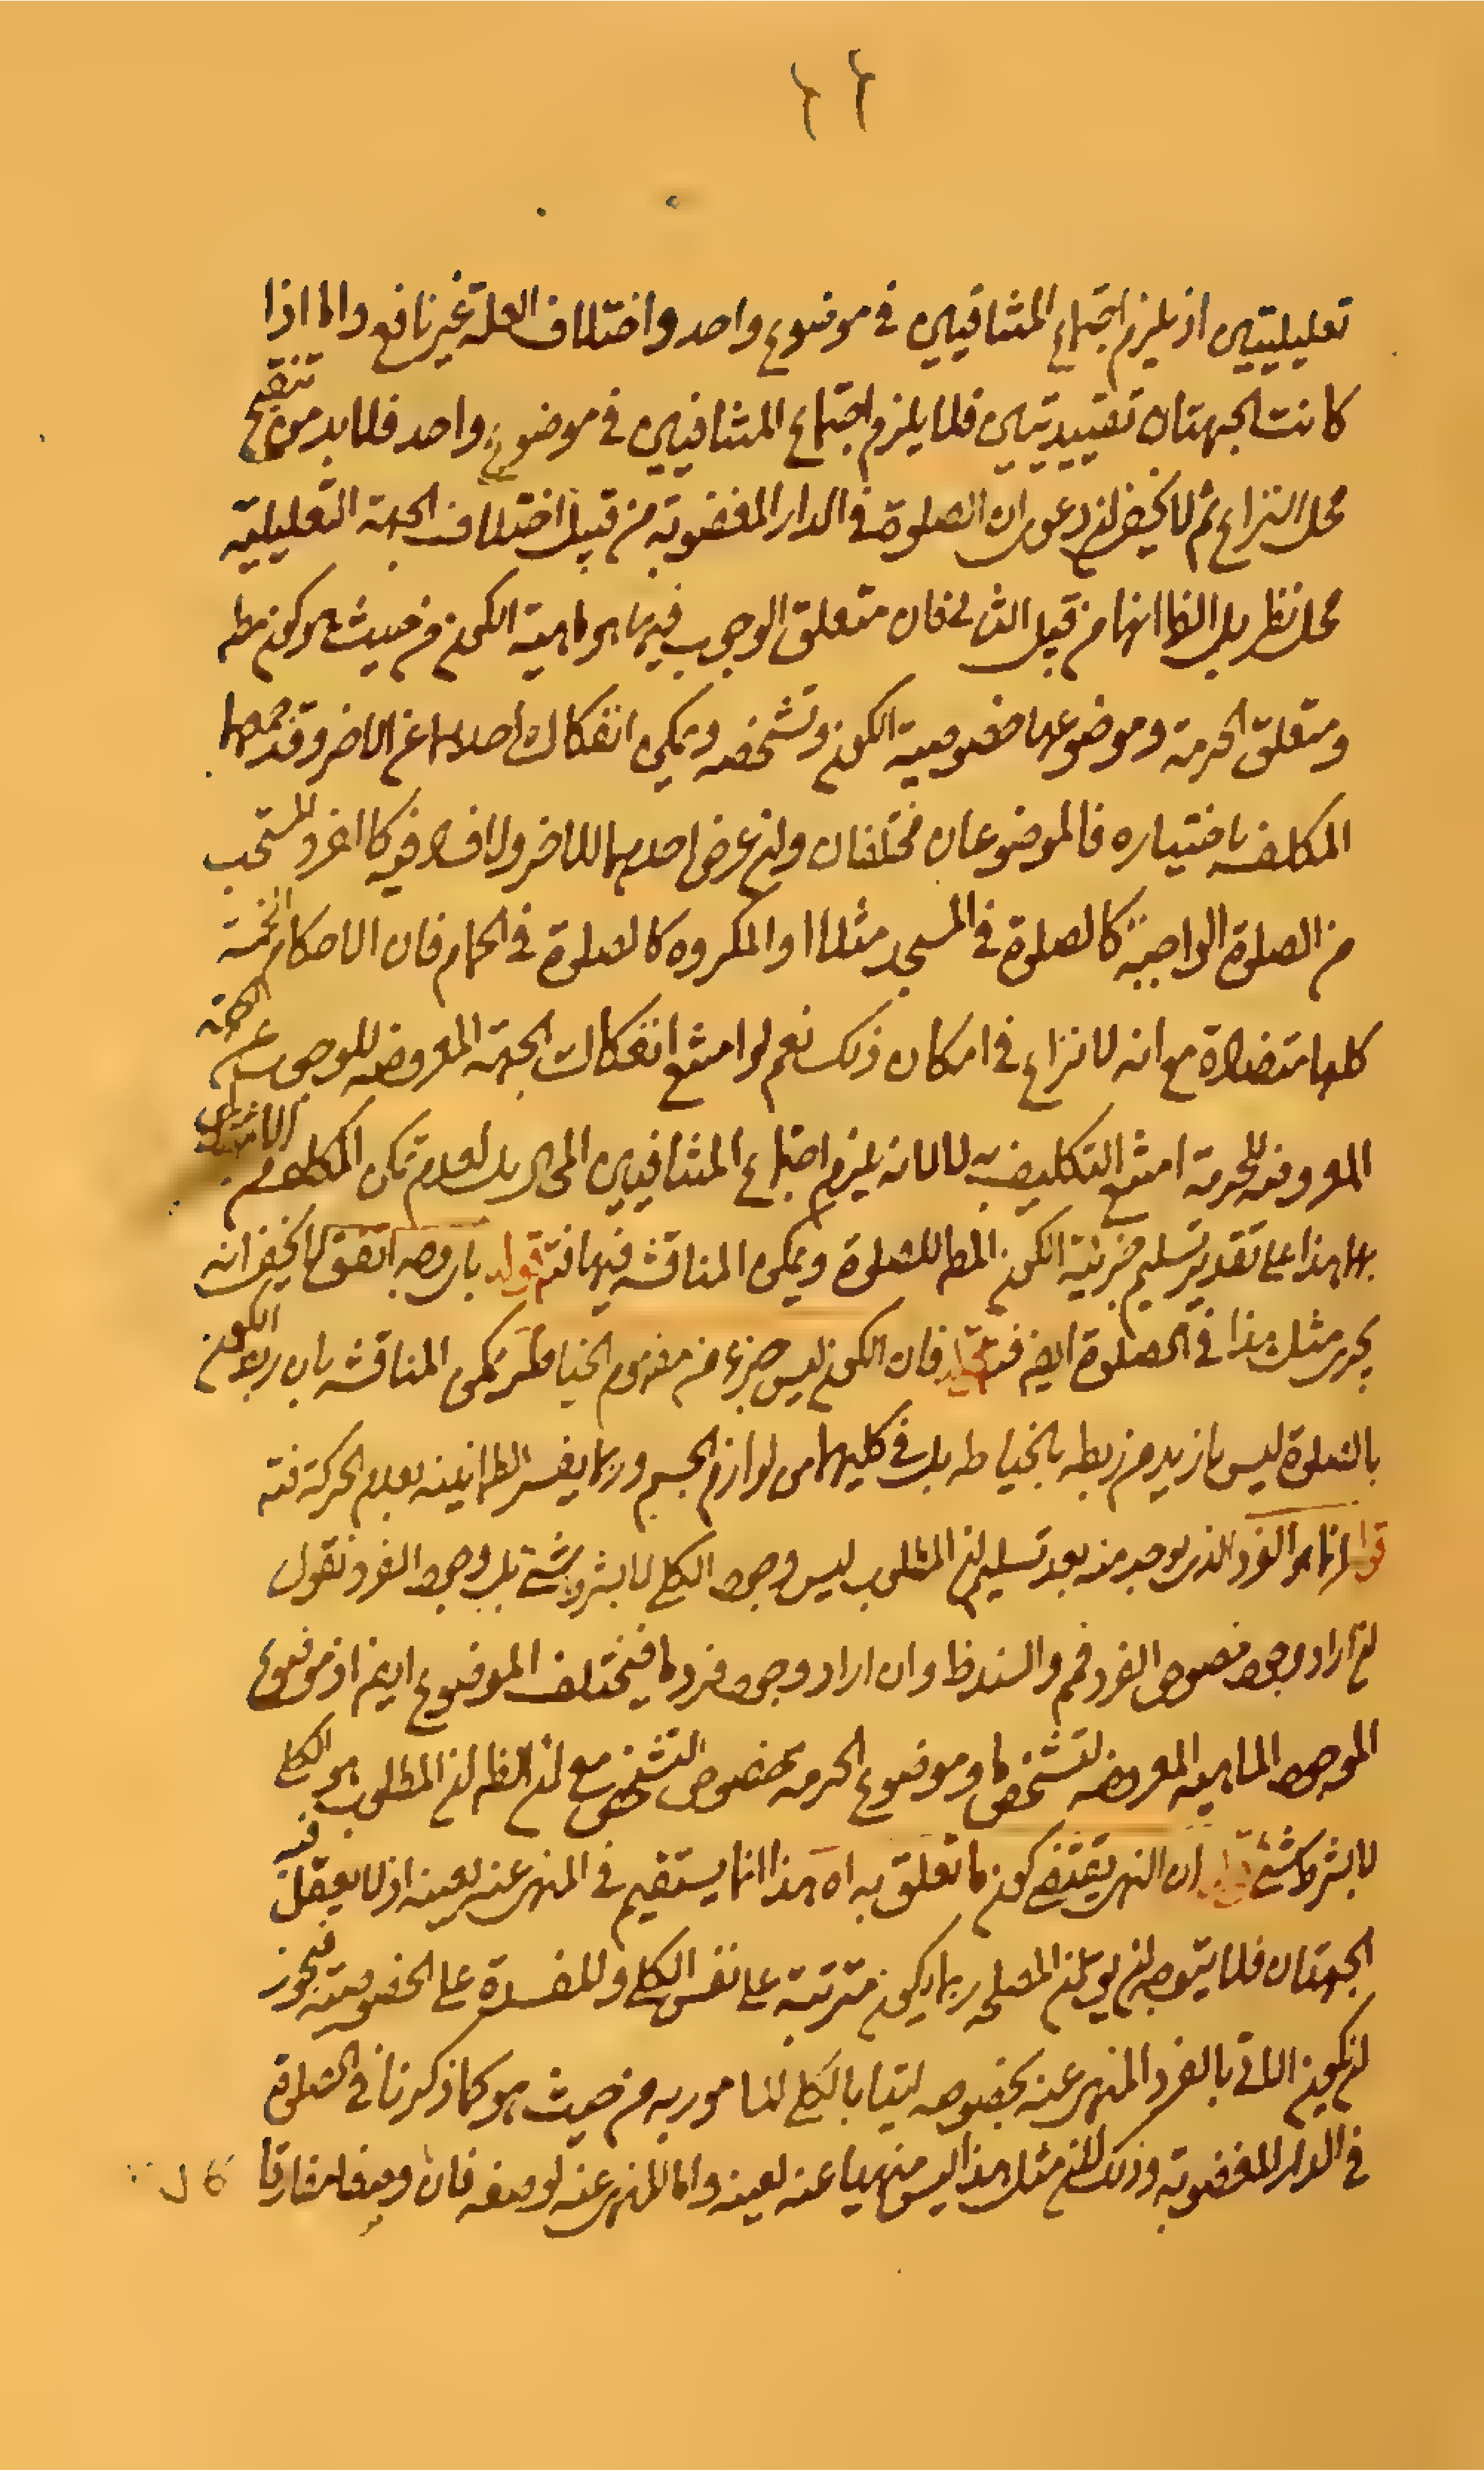 ٢٢
تعليليتين اذ يلزم اجتماع المتنافيين في موضوع واحد واختلاف العلة غير نافع واما اذا
كانت الجهتان تقييديتين فلا يلزم اجتماع المتنافيين في موضوع واحد فلا بد من تنقيح
محل النزاع ثم لا يخفى ان دعوى ان الصلوة في الدار المغصوبة من قبيل اختلاف الجهة التعليلية
محل نظر بل الظ انها من قبيل الثاني فان متعلق الوجوب فيها هو ماهية الكون من حيث هو كون مطلق
ومتعلق الحرمة وموضوعها خصوصية الكون وتشخصه ويمكن انفكاك احدهما عن الاخر وقد جمعهما
المكلف باختياره فالموضوعان مختلفان وان عرض احدهما للاخر ولا فساد فيه كالفرد المستحب
من الصلوة الواجبة كالصلوة في المسجد مثلا او المكروه كالصلوة في الحمام فان الاحكام الخمسة
كلها متضادة مع انه لا نزاع في امكان ذلك نعم لو امتنع انفكاك الجهة المعروضة للوجوب عن الجهة
المعروضة للحرمة امتنع التكليف به لا لانه يلزم اجتماع المتنافيين المحال بل لعدم تمكن المكلف من الامتثال
بهما هذا على تقدير تسليم جزئية الكون المط للصلوة ويمكن المناقشة فيها فتم قوله باى وجه اتفق لا يخفى انه
يجرى مثل هذا في الصلوة ايض فت قوله فان الكون ليس جزء من مفهوم الخياطة يمكن المناقشة بان ربط الكون
بالصلوة ليس بازيد من ربطه بالخياطة بل في كليهما من لوازم الجسم وربما يفسر الطمانينة بعدم الحركة فتم
قوله انما هو الفرد الذى يوجد منه بعد تسليم ان المطلوب ليس وجود الكلي لا بشرط شئ بل وجود الفرد نقول
ان اراد وجود خصوص الفرد فمم والسند ظ وان اراد وجود فرد ما فيختلف الموضوع ايض اذ موضوع
الوجود الماهية المعروضة لتشخص ما وموضوع الحرمة خصوص التشخص مع ان الظ ان المطلوب هو الكلي
لا بشرط شئ قوله ان النهى يقتضى كون ما تعلق به اه هذا انما يستقيم في المنهى عنه لعينه اذ لا يعقل فيه
الجهتان فلا يتوجه ان يق ان المصلحة ربما يكون مترتبة على نفس الكلي والمفسدة على الخصوصية فيجوز
ان يكون الاتى بالفرد المنهى عنه بخصوصه اتيا بالكلي المامور به من حيث هو كما ذكرنا في الصلوة
في الدار المغصوبة وذلك لان مثل هذا ليس منهيا عنه لعينه واما المنهى عنه لوصفه فان كان وصفا مفارقا